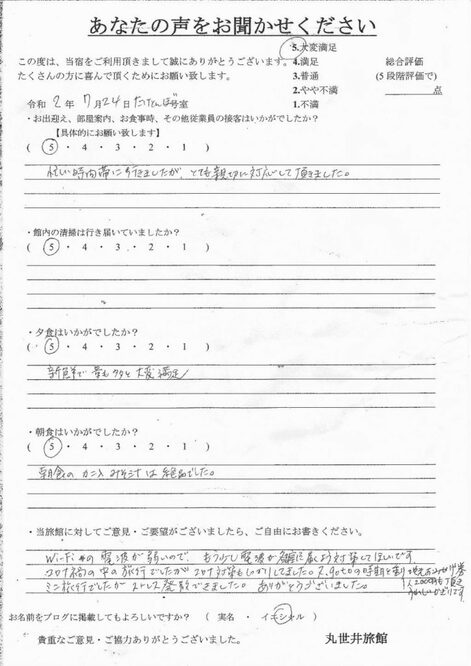 あなたの声をお聞かせください
この度は、当宿をご利用頂きまして誠にありがとうございます。
たくさんの方に喜んで頂くためにお願い致します。
5.大変満足
4.満足
3.普通
2.やや不満
1.不満
総合評価
(5段階評価で)
点
令和 2年 7月24日 たんぽぽ号室
・お出迎え、部屋案内、お食事時、その他従業員の接客はいかがでしたか?
【具体的にお願い致します】
( 5 ・ 4 ・ 3 ・ 2 ・ 1 )
忙しい時間帯に行きましたが、とても親切に対応して頂きました。
・館内の清掃は行き届いていましたか?
( 5 ・ 4 ・ 3 ・ 2 ・ 1 )
・夕食はいかがでしたか?
( 5 ・ 4 ・ 3 ・ 2 ・ 1 )
新鮮で量も多く大変満足
・朝食はいかがでしたか?
( 5 ・ 4 ・ 3 ・ 2 ・ 1 )
朝食のカニみそ汁は絶品でした。
・当旅館に対してご意見・ご要望がございましたら、ご自由にお書きください。
Wi-Fiの電波が弱いので、もう少し電波が届くよう対策してほしいです
コロナ禍の中の旅行でしたがコロナ対策もしっかりしてました。
ミニ旅行でしたがストレス発散できました。ありがとうございました。
お名前をブログに掲載してもよろしいですか? ( 実名 ・ イニシャル )
貴重なご意見・ご協力ありがとうございました。
丸世井旅館